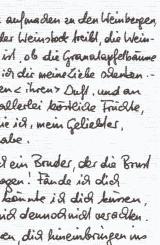 aufmachen zu den Weinbergen,
der Weinstock treibt, die Wein-
ist, ob die Granatapfelbäume
ich dir meine Liebe schenken.-
en < ihren > Duft, und an
allerlei köstliche Früchte,
ie ich, mein Geliebter,
abe.
ein Bruder, der die Brust
ogen! Fände ich dich
könnte ich dich küssen,
ich dennoch nicht verachten.
en, dich hineinbringen ins